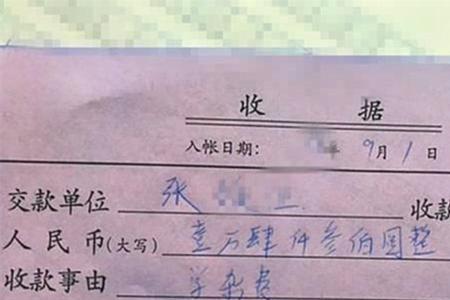 收 据
入帐日期: 年 9月1日
交款单位 张 收款
人民币(大写) 壹万肆仟叁佰圆整
收款事由 学杂费